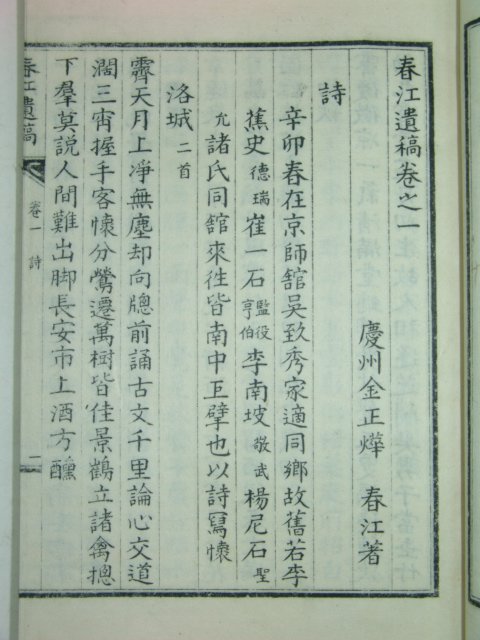 春江遺稿卷之一
慶州金正燁 春江著
詩
辛卯春在京師舘吳致秀家適同鄉故舊若李
蕉史德瑞崔一石監役亨伯李南坡敬武楊尼石聖
允諸氏同舘來往皆南中巨擘也以詩寫懷
洛城二首
霽天月上淨無塵却向牕前誦古文千里論心交道
濶三宵握手客懷分鶯遷萬樹皆佳景鶴立諸禽摠
下羣莫說人間難出脚長安市上酒方醺
春江遺稿
卷一 詩
一